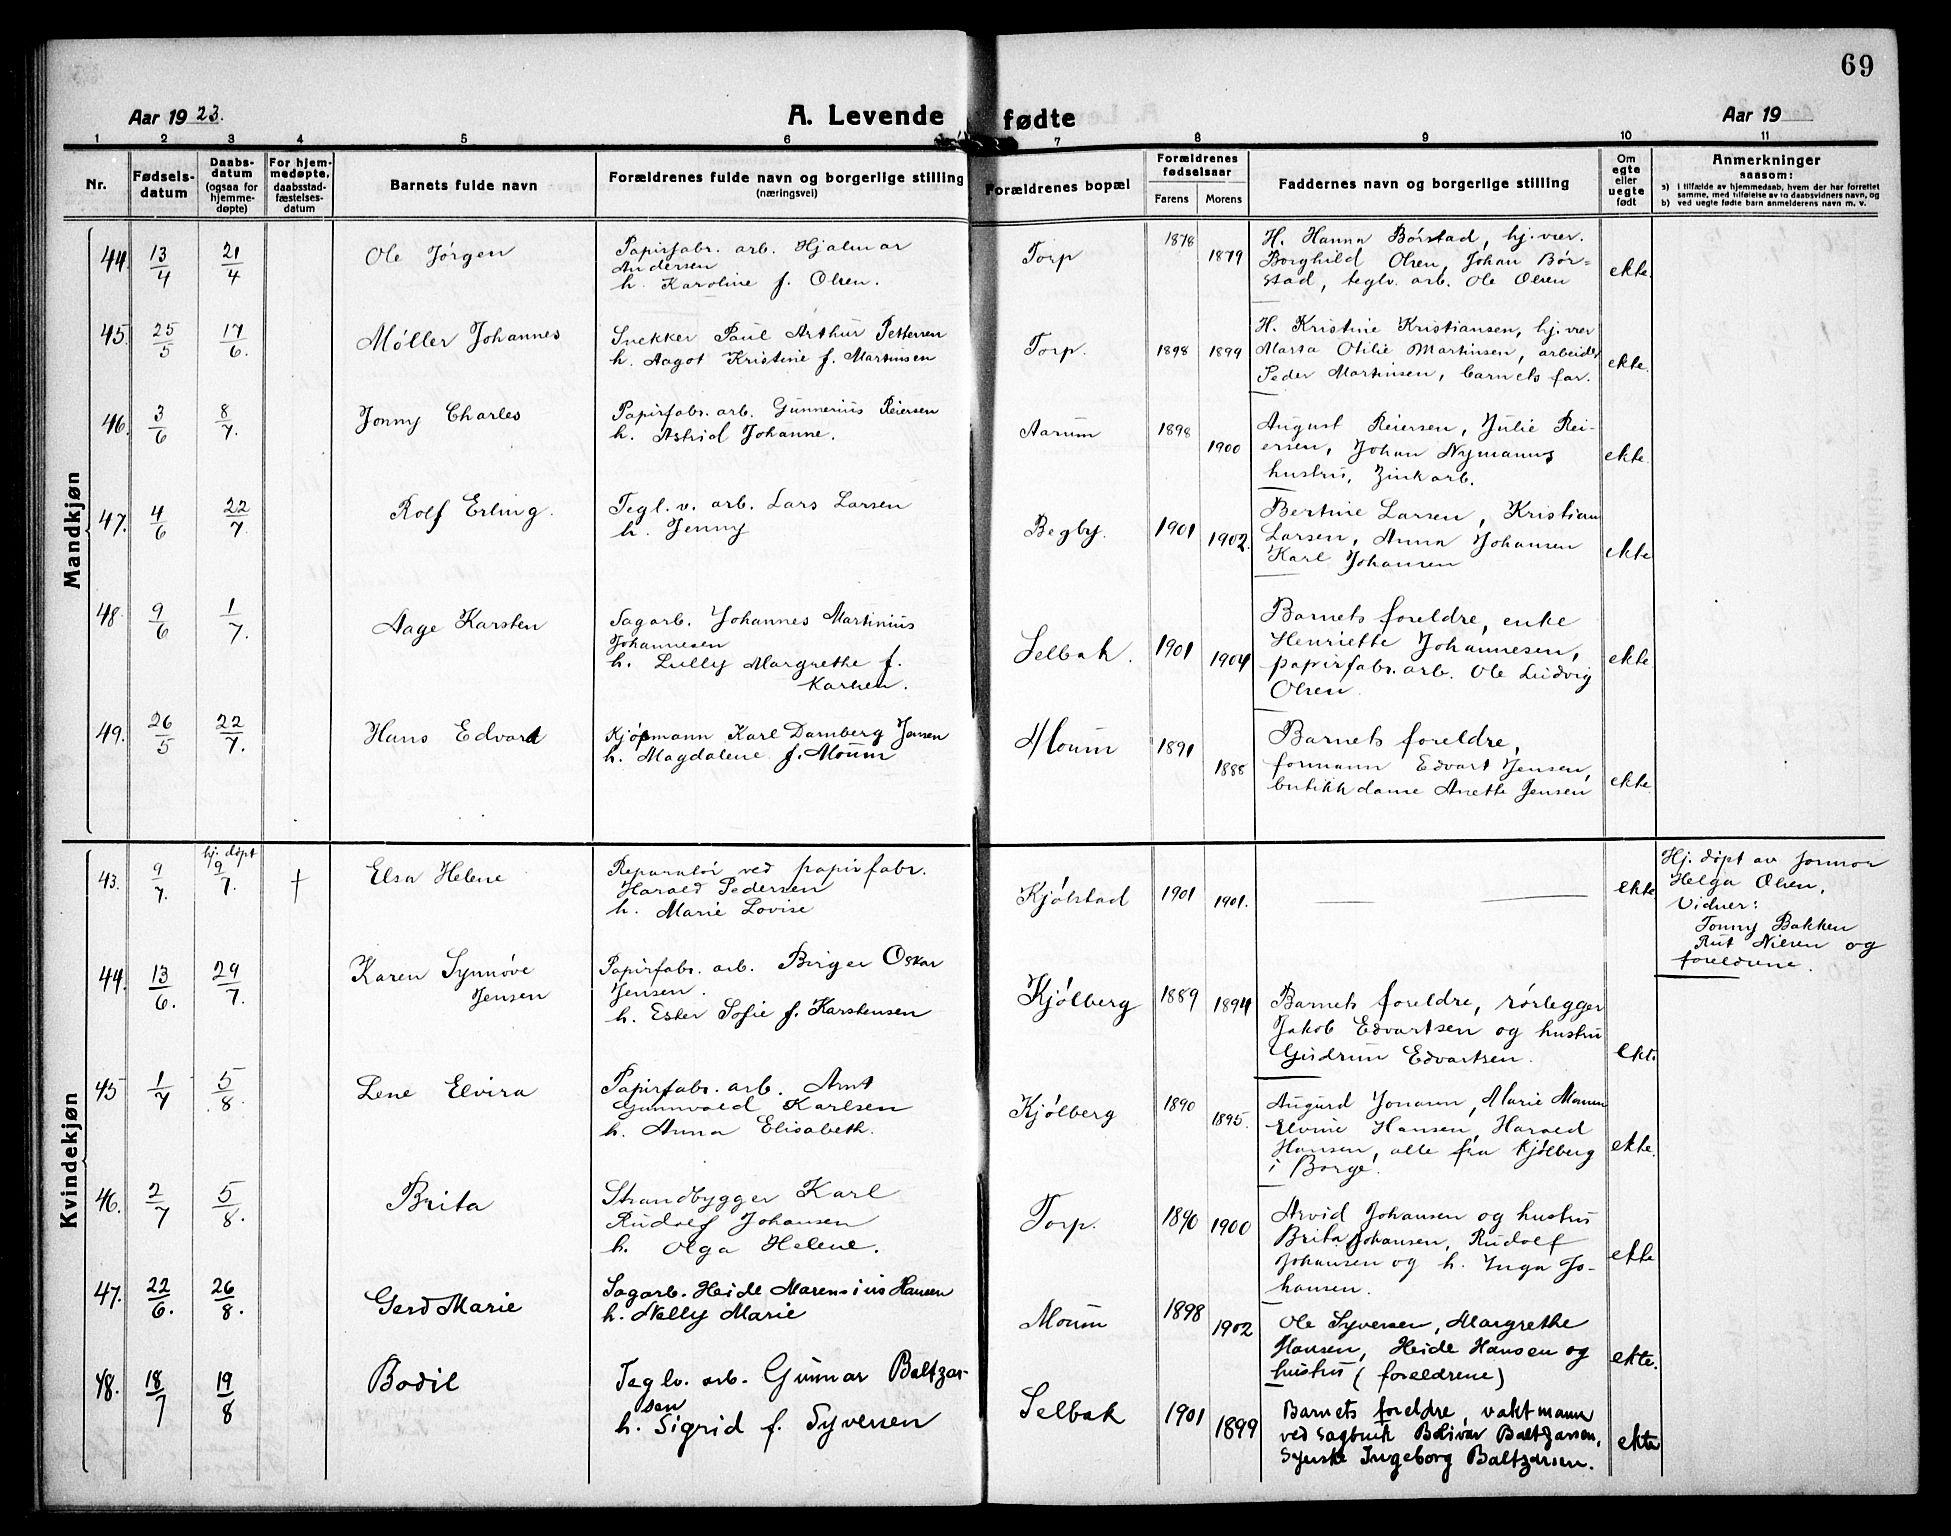 69
Aar 19 23.
A. Levende fødte
Aar 19
1 2 3 4 5 6 7 8 9 10 11
Nr.
Fødsels-
datum
Daabs-
datum
(ogsaa for
hjemme-
døpte)
For hjem-
medøpte,
daabsstad-
fæstelses-
datum
Barnets fulde navn
Forældrenes fulde navn og borgerlige stilling
(næringsvei)
Forældrenes bopæl
Forældrenes
fødselsaar
Farens Morens
Faddernes navn og borgerlige stilling
Om
egte
eller
uegte
født
Anmerkninger
saasom:
a) i tilfælde av hjemmedaab, hvem der har forrettet
samme, med tilføielse av to daabsvidners navn, og
b) ved uegte fødte barn anmelderens navn m. v.
Mandkjøn
44. 13/4 21/4 Ole Jørgen
Papirfabr. arb. Hjalmar
Andersen
h. Karoline f. Olsen.
Torp 1878 1879
H. Hanna Børstad, hj.vær.
Borghild Olsen, Johan Bør-
stad, teglv. arb. Ole Olsen
ekte.
45. 25/5 17/6. Møller Johannes
Snekker Paul Arthur Pettersen
h. Aagot Kristine f. Martinsen
Torp. 1898 1899
H. Kristine Kristiansen, hj.vær
Marta Otilie Martinsen, arbeider
Peder Martinsen, barnets far.
ekte.
46. 3/6 8/7. Jonny Charles
Papirfabr. arb. Gunnerius Reiersen
h. Astrid Johanne.
Aarum 1898 1900
August Reiersen, Julie Rei-
ersen, Johan Nymanns
hustru, Zink arb.
ekte.
47. 4/6 22/7. Rolf Erling.
Tegl. v. arb. Lars Larsen
h. Jenny
Begby. 1901 1902.
Bertine Larsen, Kristian
Larsen, Anna Johansen
Karl Johansen
ekte
48. 9/6 1/7. Aage Karsten
Sagarb. Johannes Martinius
Johannesen
h. Lilly Margrethe f.
Karlsen.
Selbak. 1901 1904
Barnets foreldre, enke
Henriette Johannesen,
papirfabr. arb. Ole Ludvig
Olsen.
ekte.
49. 26/5 22/7. Hans Edvard
Kjøpmann Karl Damberg Jensen
h. Magdalene f. Moum
Moum 1891 1888
Barnets foreldre,
formann Edvart Jensen,
butikkdame Anette Jensen
ekte.
Kvindekjøn
43. 9/7. hj. døpt 9/7. † Elsa Helene
Reparatør ved papirfabr.
Harald Pedersen
h. Marie Lovise
Kjølstad 1901 1901.
— —
ekte
Hj. døpt av jormor
Helga Olsen.
Vidner:
Tonny Bakken
Rut Nilsen og
foreldrene.
44. 13/6. 29/7. Karen Synnøve
Jensen
Papirfabr. arb. Birger Oskar
Jensen.
h. Ester Sofie f. Karstensen
Kjølberg 1889 1894
Barnets foreldre, rørlegger
Jakob Edvartsen og hustru
Gudrun Edvartsen.
ekte
45 1/7 5/8. Lene Elvira
Papirfabr. arb. Arnt
Gunnvald Karlsen
h. Anna Elisabeth.
Kjølberg 1890 1895.
Marie Moum
Elvine Hansen, Harald
Hansen, alle fra Kjølberg
i Borge.
ekte.
46. 2/7 5/8. Brita
Strandbygger Karl
Rudolf Johansen
h. Olga Helene.
Torp. 1890 1900
Arvid Johansen og hustru
Brita Johansen, Rudolf
Johansen og h. Inga Jo-
hansen.
ekte
47. 22/6. 26/8. Gerd Marie
Sagarb. Heide Marensius Hansen
h. Nelly Marie
Moum 1898 1902
Ole Syversen, Margrethe
Hansen, Heide Hansen og
hustru (foreldrene)
ekte.
48. 18/7 19/8 Bodil
Teglv. arb. Gunnar Baltzar-
sen
h. Sigrid f. Syversen
Selbak 1901 1899
Barnets foreldre, vaktmann
ved sagbruk Bolivar Baltzarsen,
Syerske Ingeborg Baltzarsen.
ekte